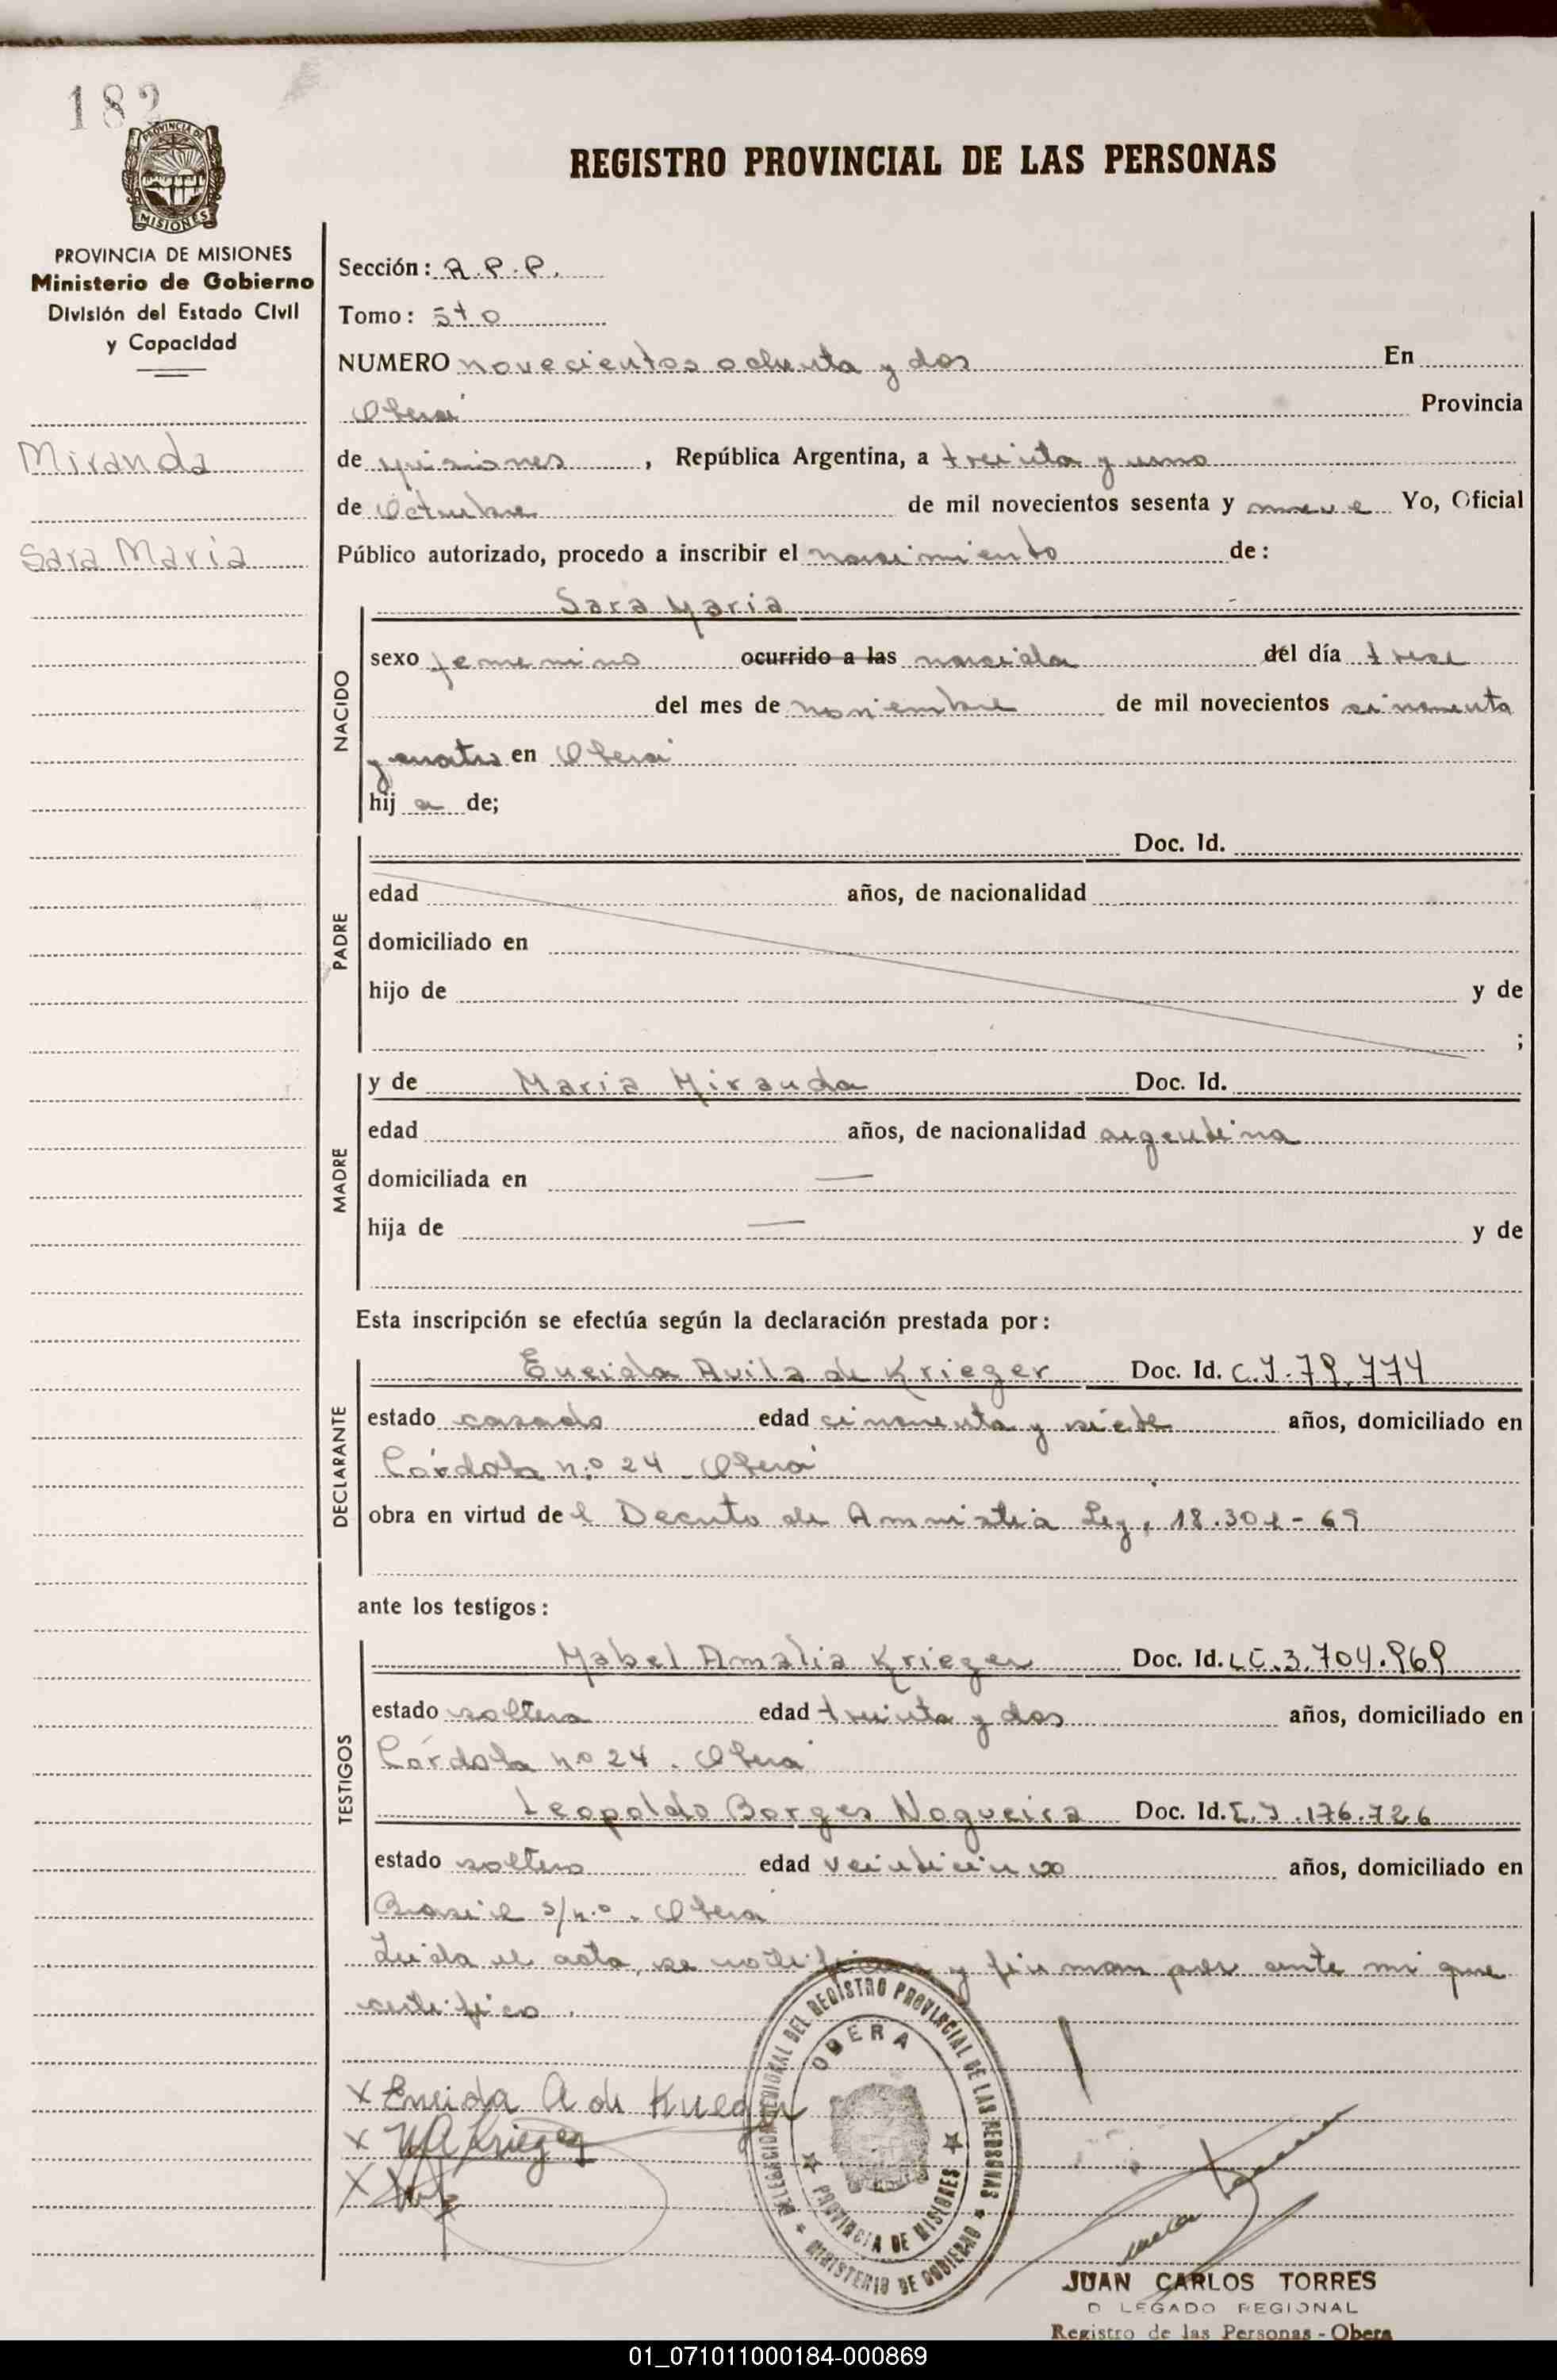 182
PROVINCIA DE
MISIONES
REGISTRO PROVINCIAL DE LAS PERSONAS
PROVINCIA DE MISIONES
Ministerio de Gobierno
División del Estado Civil
y Capacidad
Miranda
Sara Maria
Sección: R.P.P.
Tomo: 5to
NUMERO novecientos ochenta y dos En
Oberá Provincia
de misiones , República Argentina, a treinta y uno
de Octubre de mil novecientos sesenta y nueve Yo, Oficial
Público autorizado, procedo a inscribir el nacimiento de:
NACIDO
Sara Maria
sexo femenino ocurrido a las nacida del día trece
del mes de noviembre de mil novecientos cincuenta
y cuatro en Oberá
hij a de;
PADRE
Doc. Id.
edad años, de nacionalidad
domiciliado en
hijo de y de
;
MADRE
y de Maria Miranda Doc. Id.
edad años, de nacionalidad argentina
domiciliada en —
hija de — y de
Esta inscripción se efectúa según la declaración prestada por:
DECLARANTE
Eneida Avila de Krieger Doc. Id. C.I. 79.774
estado casado edad cincuenta y siete años, domiciliado en
Córdoba n.º 24 - Oberá
obra en virtud de l Decreto de Amnistia Ley, 18.301-69
ante los testigos:
TESTIGOS
Mabel Amalia Krieger Doc. Id. LC.3.704.969
estado soltera edad treinta y dos años, domiciliado en
Córdoba nº 24. Oberá
Leopoldo Borges Nogueira Doc. Id. C.I.176.726
estado soltero edad veinticinco años, domiciliado en
Brasil s/n.º. Oberá
Leida el acta, se ratifican y firman por ante mi que
certifico.
X Eneida A de Krieger
X MA Krieger
X
DELEGACION REGIONAL DEL REGISTRO PROVINCIAL DE LAS PERSONAS
OBERA
PROVINCIA DE MISIONES
MINISTERIO DE GOBIERNO
JUAN CARLOS TORRES
D LEGADO REGIONAL
Registro de las Personas - Obera
01_071011000184-000869